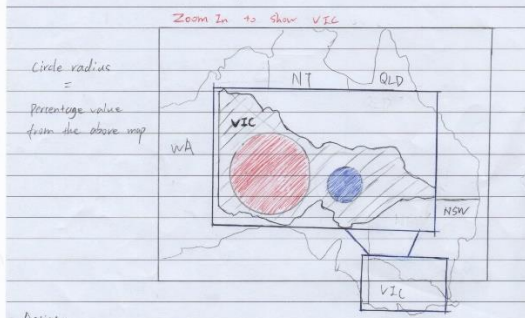 Zoom In to show VIC
Circle radius
=
Percentage value
from the above map
NT
QLD
VIC
WA
NSW
VIC